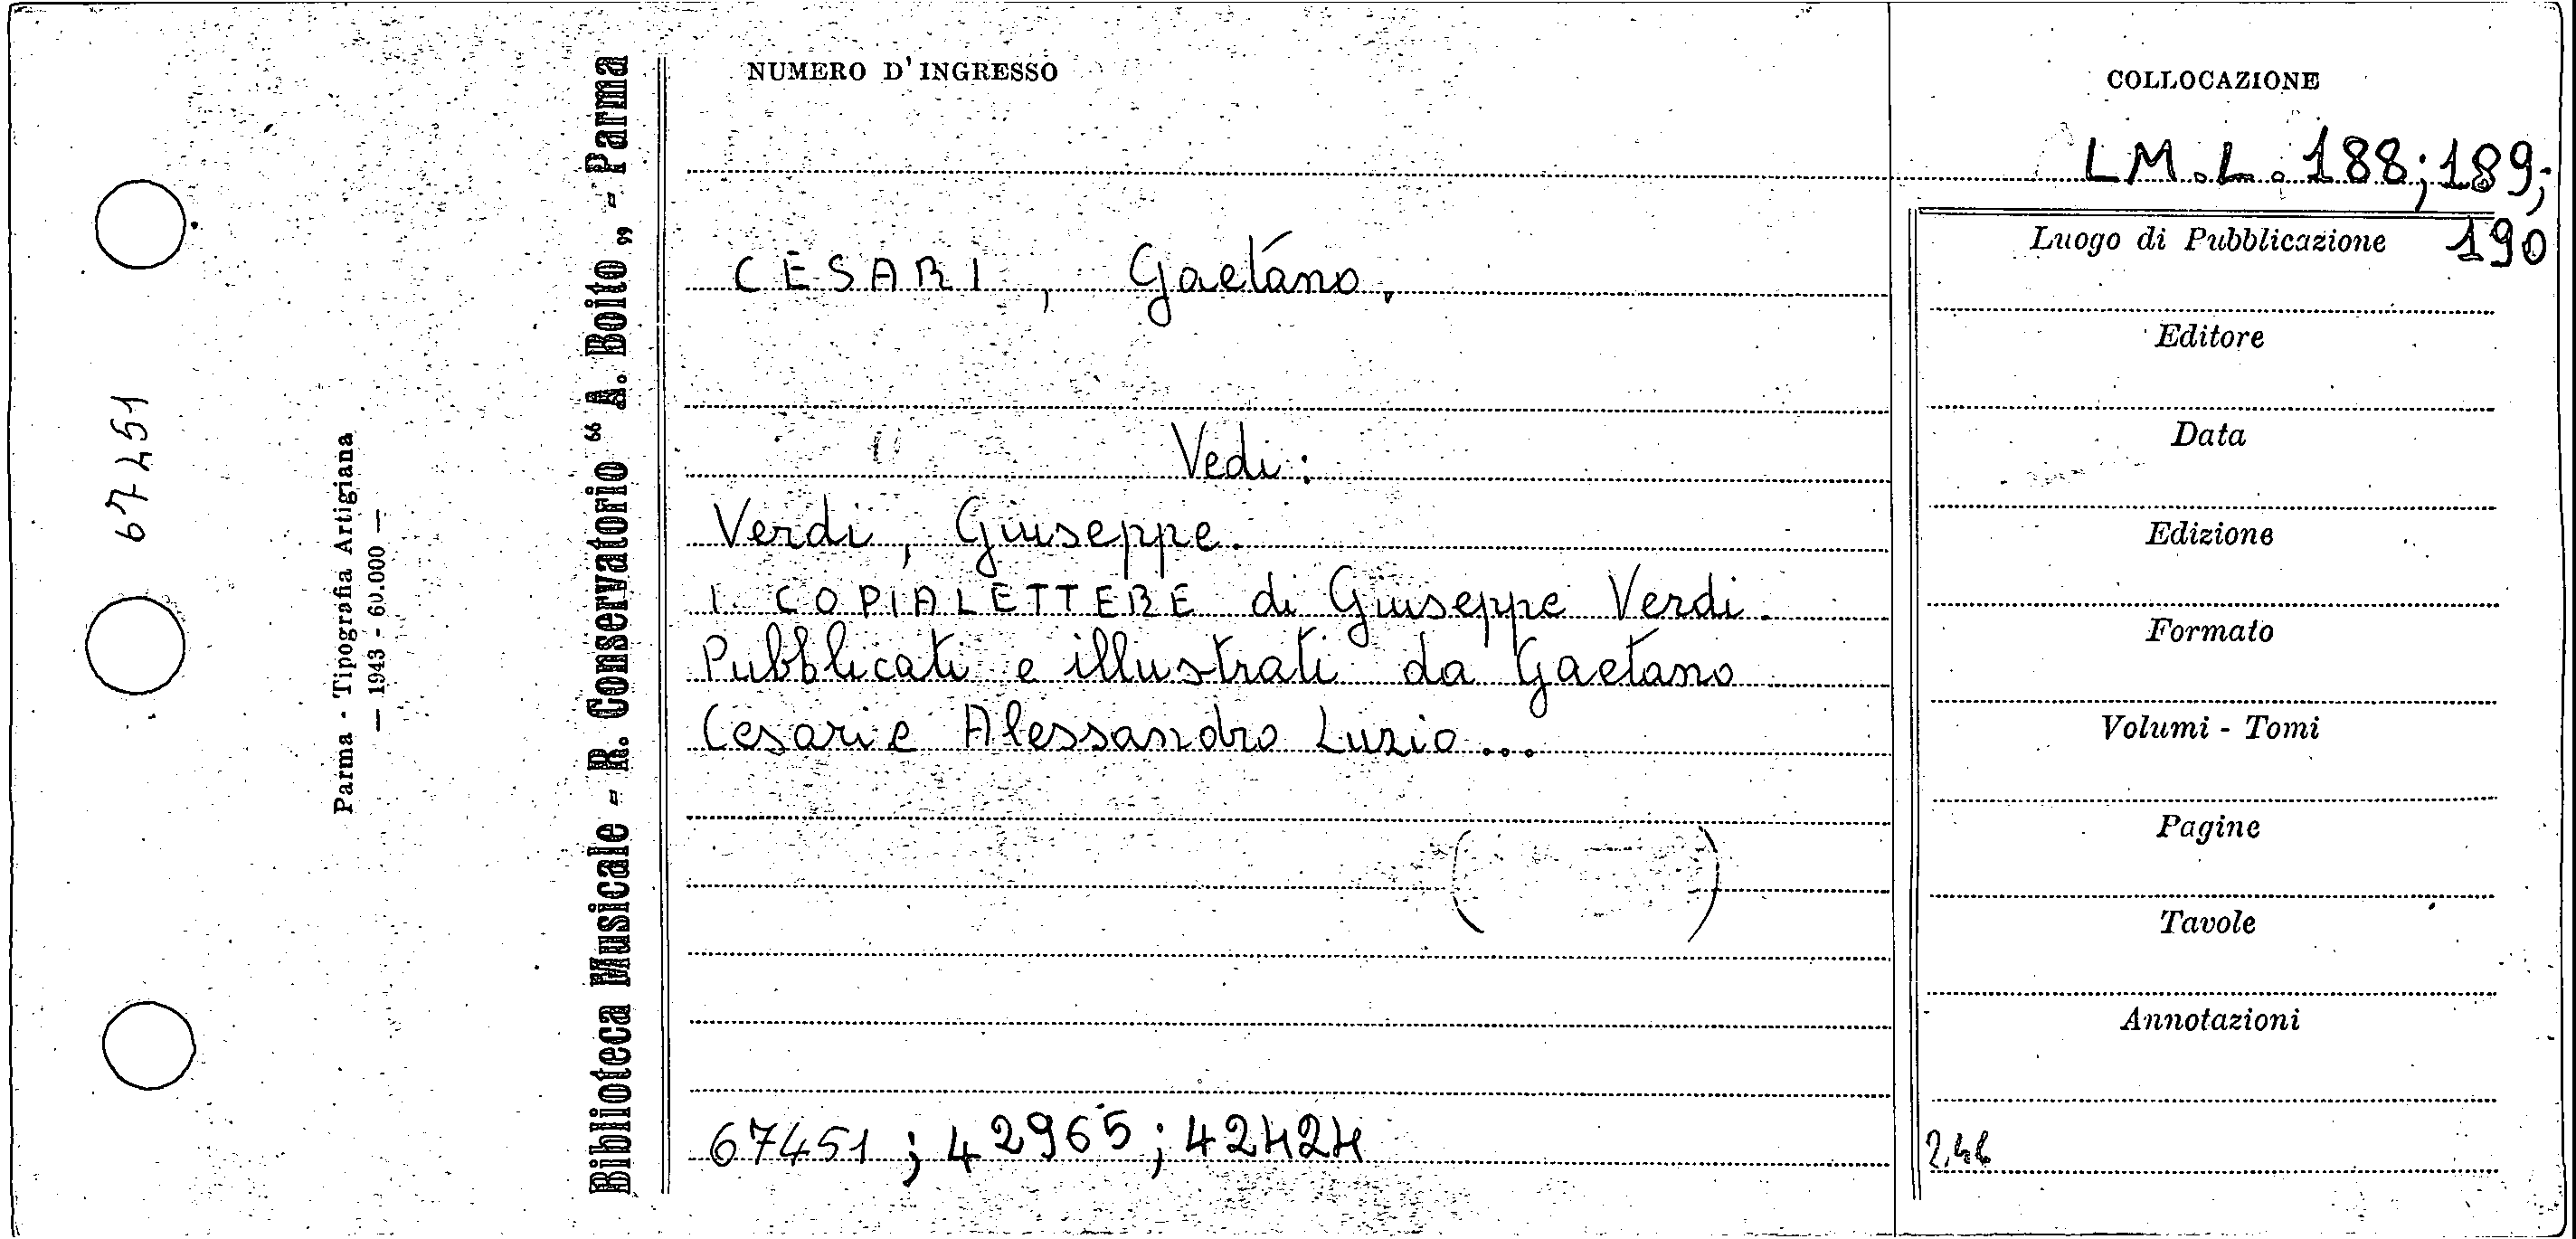 67451
Parma - Tipografia Artigiana
— 1943 - 60.000 —
Biblioteca Musicale - R. Conservatorio "A. Boito" - Parma
NUMERO D'INGRESSO
CESARI, Gaetano.
Vedi:
Verdi, Giuseppe.
I COPIALETTERE di Giuseppe Verdi.
Pubblicati e illustrati da Gaetano
Cesari e Alessandro Luzio...
67451; 42965; 42424
COLLOCAZIONE
LM.L. 188; 189;
190
Luogo di Pubblicazione
Editore
Data
Edizione
Formato
Volumi - Tomi
Pagine
Tavole
Annotazioni